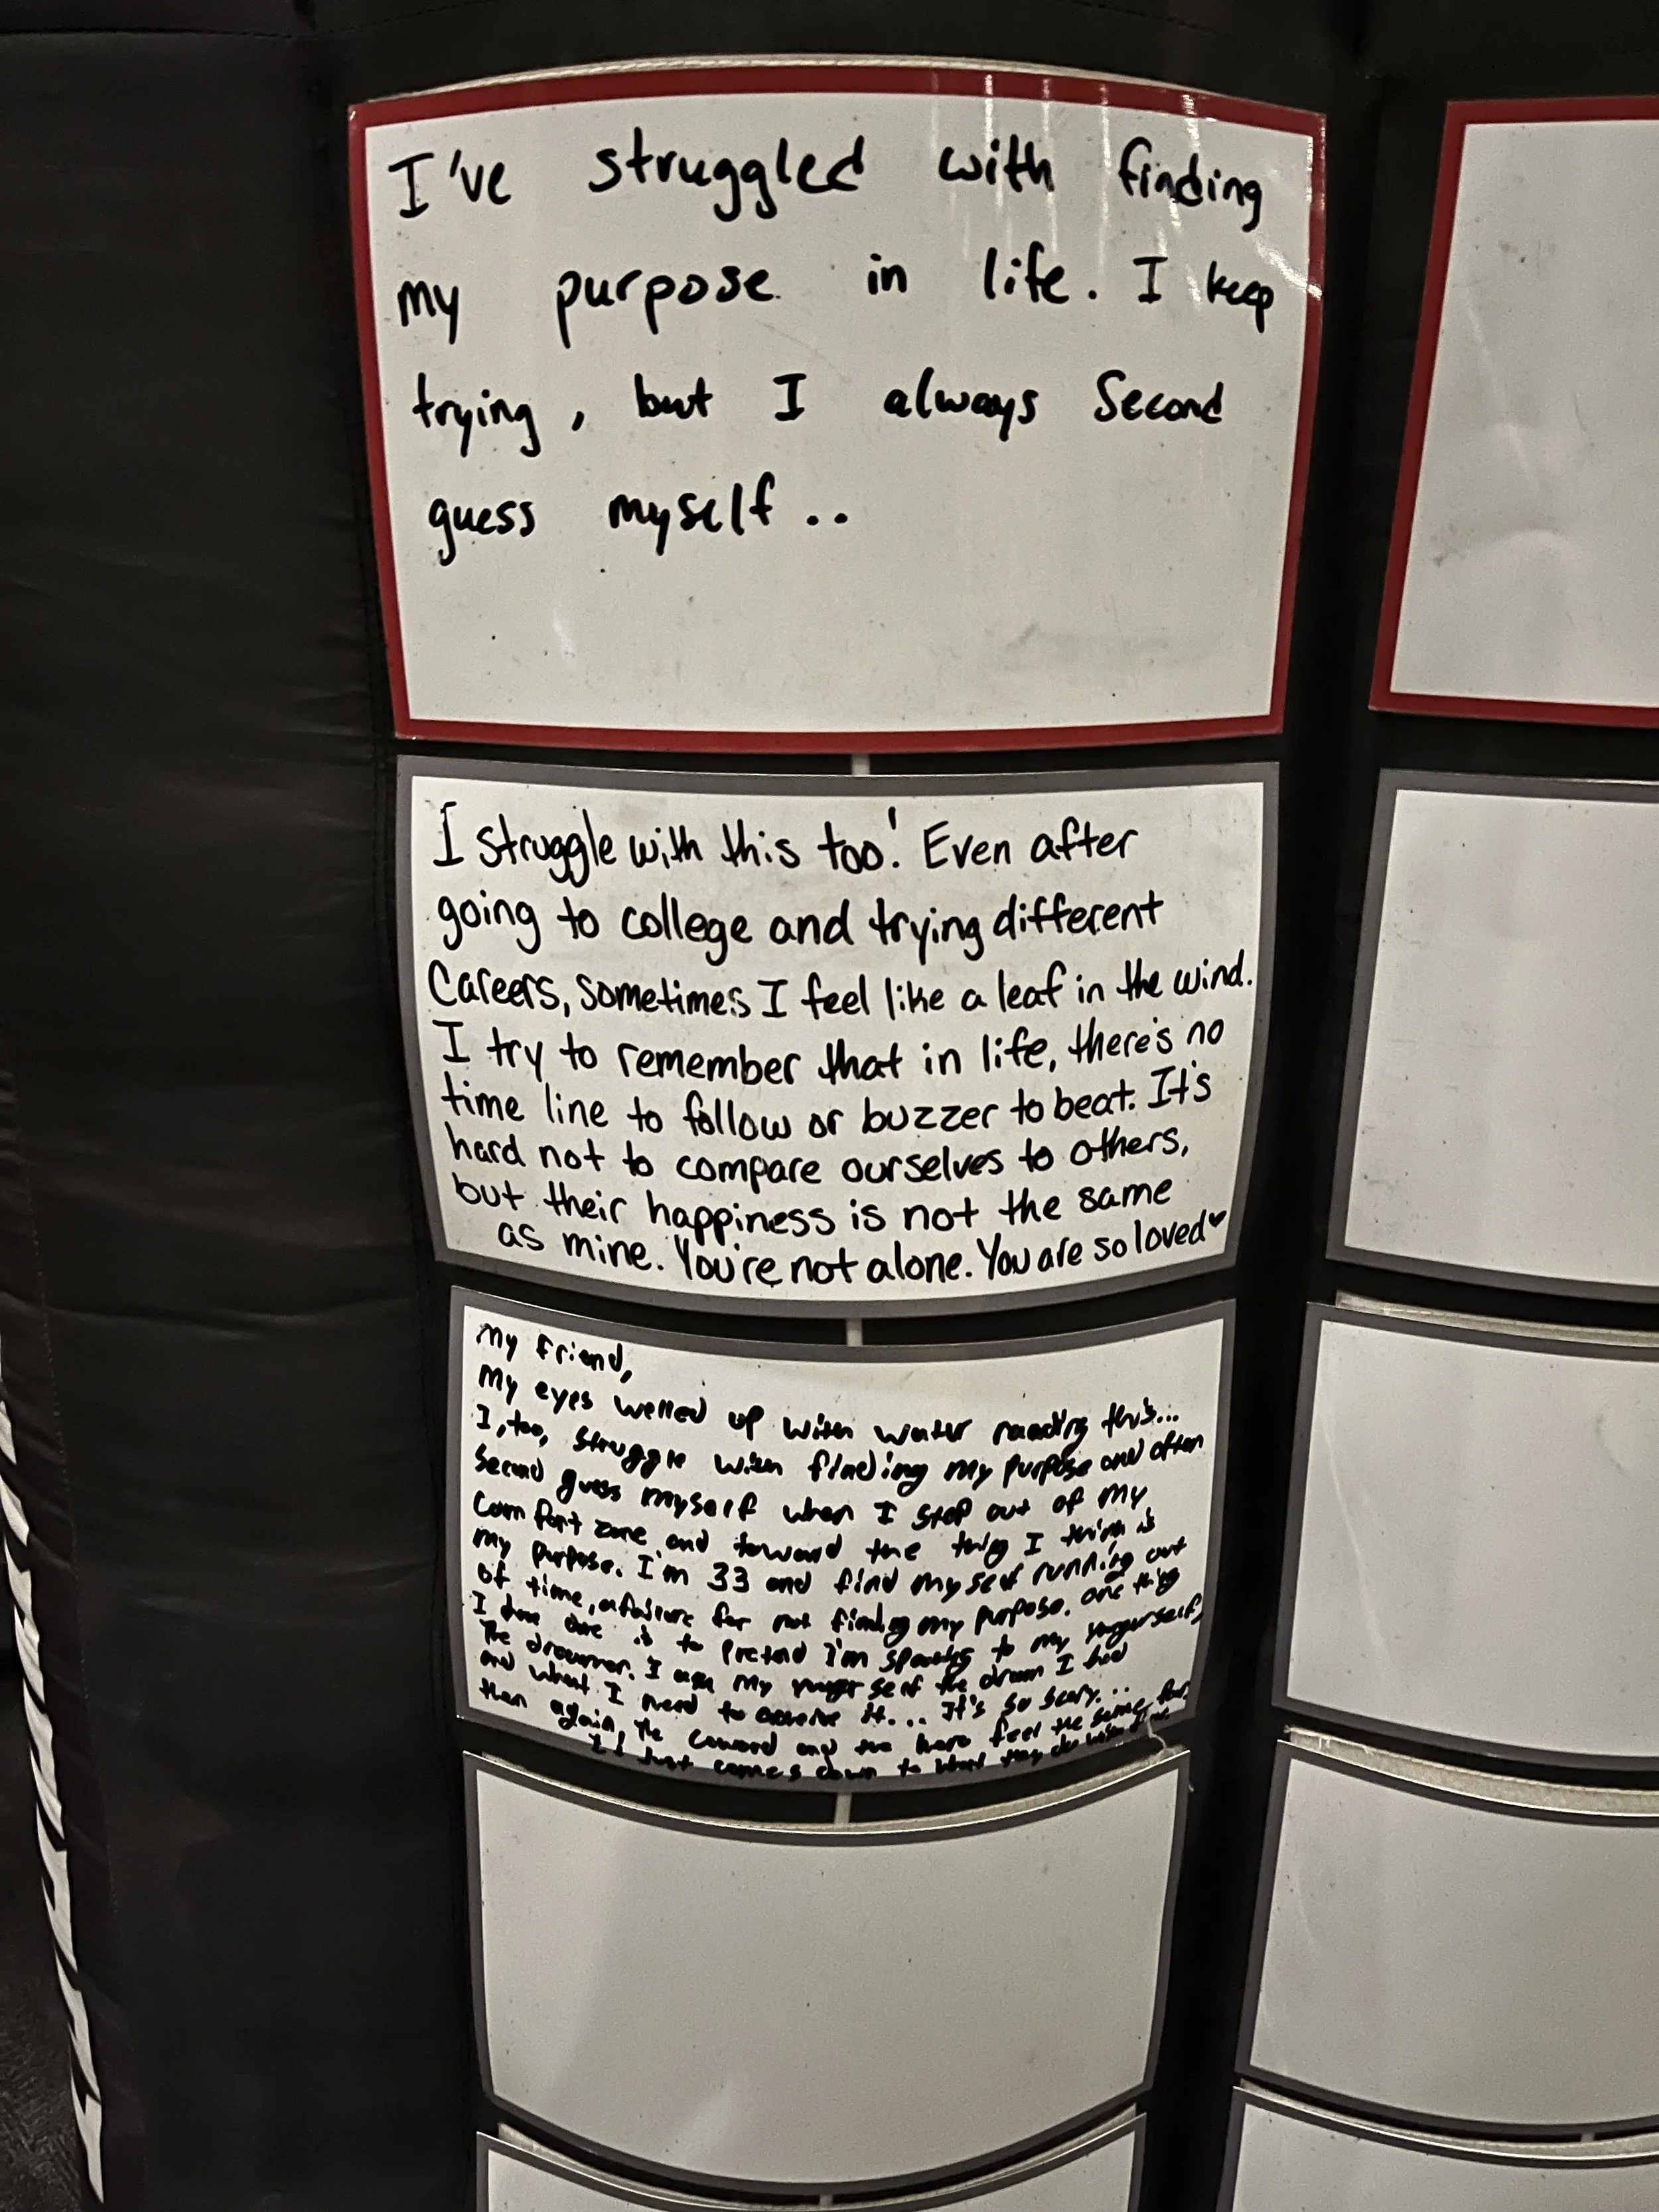 I've struggled with finding
my purpose in life. I keep
trying, but I always Second
guess myself..
I struggle with this too! Even after
going to college and trying different
Careers, sometimes I feel like a leaf in the wind.
I try to remember that in life, there's no
time line to follow or buzzer to beat. It's
hard not to compare ourselves to others,
but their happiness is not the same
as mine. You're not alone. You are so loved♥
My Friend,
My eyes welled up with water reading this...
I, too, struggle with finding my purpose and often
Second guess myself when I step out of my
Comfort zone and toward the thing I think is
my purpose. I'm 33 and find myself running out
of time, a failure for not finding my purpose. one thing
I is to pretend I'm speaking to my younger self,
The dreamer. I ask my younger self the dream I had
and what I need to achieve it... It's so scary...
then again, the coward and the hero feel the same fear
It Just comes down to what they do with